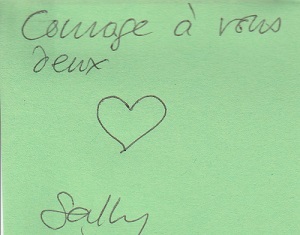 Courage à vous
deux
Sally